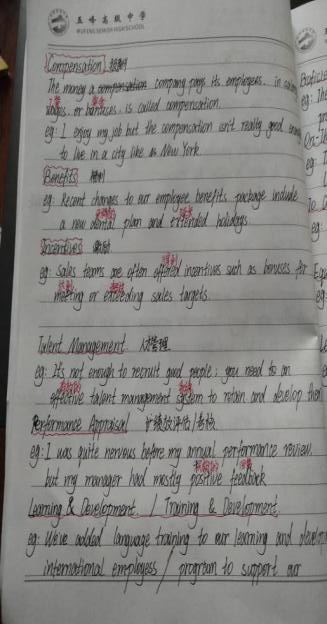 五峰高级中学
WUFENG SENIOR HIGH SCHOOL
Compensation
The money a company pays its employees, in
wages, or bonuses, is called compensation.
eg: I enjoy my job but the compensation isn't really good
to live in a city like New York
Benefits 福利
eg: Recent changes to our employee benefits package include
a new dental plan and extended holidays.
Incentives
eg: Sales teams are often offered incentives such as bonuses for
meeting or exceeding sales targets.
Talent Management 人才管理
eg: It's not enough to recruit good people; you need to an
effective talent management system to retain and develop them
Performance Appraisal 绩效评估/考核
eg: I was quite nervous before my annual performance review
but my manager had mostly positive feedback
Learning & Development / Training & Development
eg: We've added language training to our learning and
international employess / program to support our